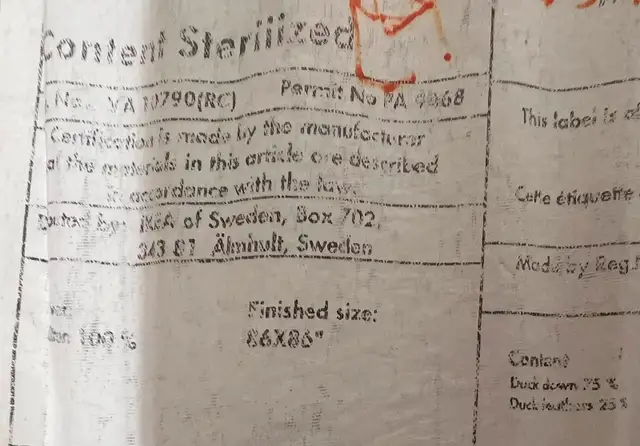 Content Sterilized
No. VA 10790(RC) Permit No PA
Certification is made by the manufacturer
the materials in this article are described
in accordance with the law.
by: IKEA of Sweden, Box 702,
343 81 Älmhult, Sweden
100 %
Finished size:
86X86"
This label is
Cette étiquette
Made by Reg.
Content
Duck down 75 %
Duck feathers 25 %